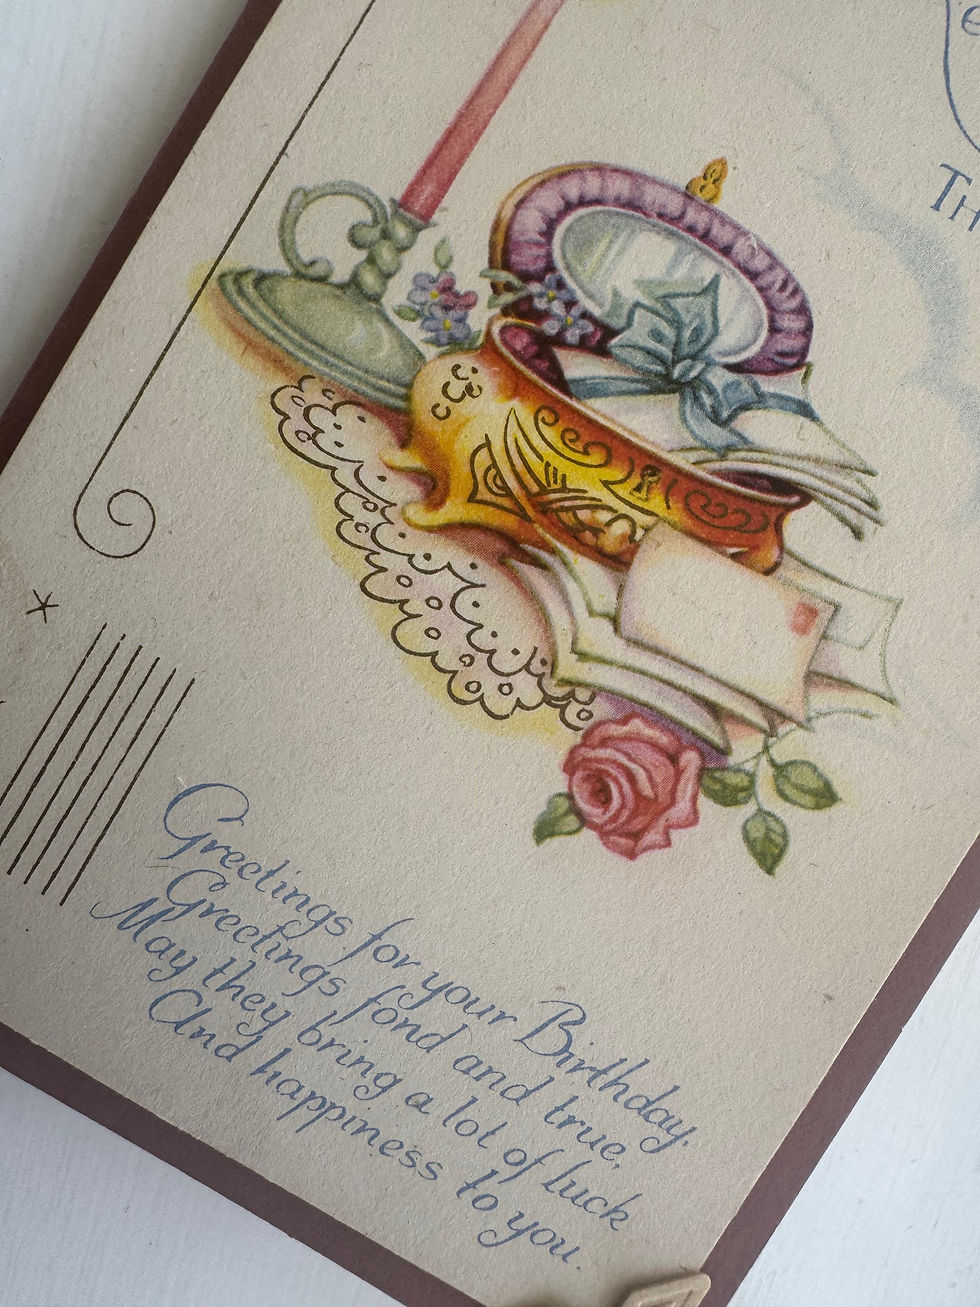 Greetings for your Birthday,
Greetings fond and true,
May they bring a lot of luck
And happiness to you.